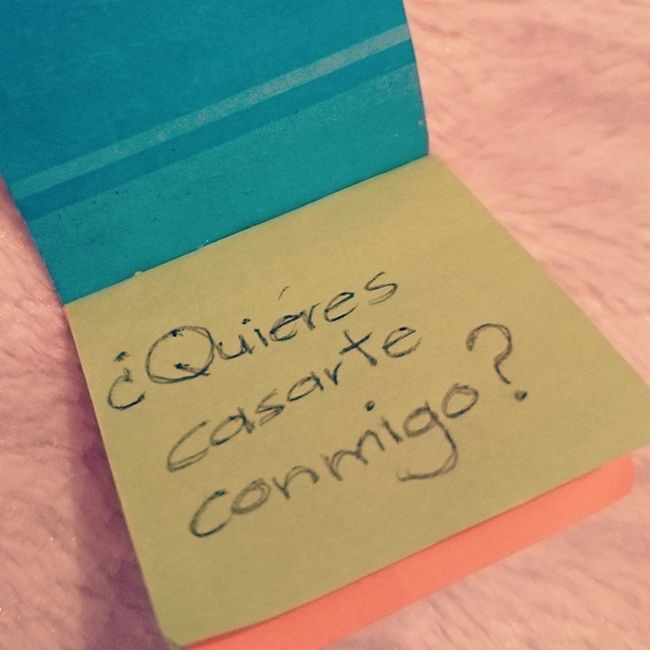 ¿Quiéres
casarte
conmigo?